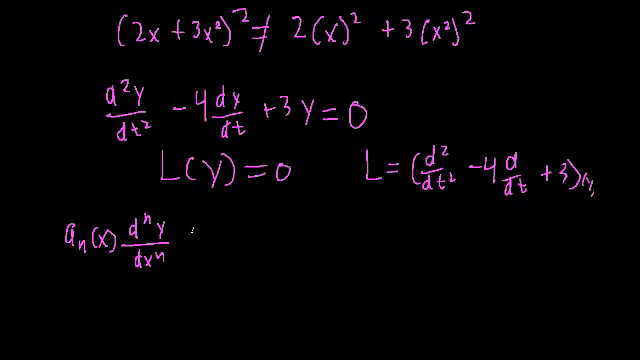 (2x + 3x²)² ≠ 2(x)² + 3(x²)²
d²y/dt² - 4 dy/dt + 3y = 0
L(y) = 0 L = (d²/dt² - 4 d/dt + 3)(y)
aₙ(x) dⁿy/dxⁿ